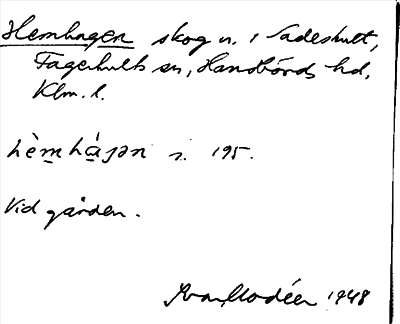 Hemhagen skog n. i Sadeshult,
Fagerhults sn, Handbörds hd,
Klm. l.
hèm̠há̠ɡən n. 195.
Vid gården.
Ivar Modéer 1948